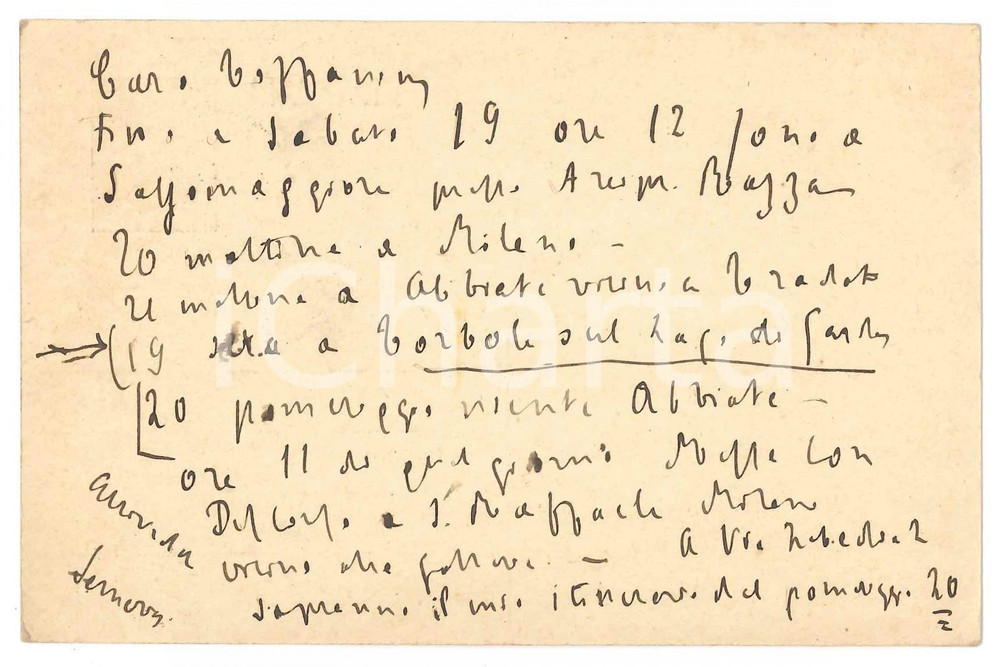 Caro Toffanin
Fino a Sabato 19 ore 12 sono a
Salsomaggiore presso Arcipr. Razza
20 mattina a Milano -
21 mattina a Abbiate vicino a Tradate
(19 sera a Torbole sul Lago di Garda
[20 pomeriggio Abbiate -
ore 11 di quel giorno Messa con
Discorso a S. Raffaele Milano
vicino alla - A Via
sapranno il mio itinerario del pomeriggio 20
iCharta